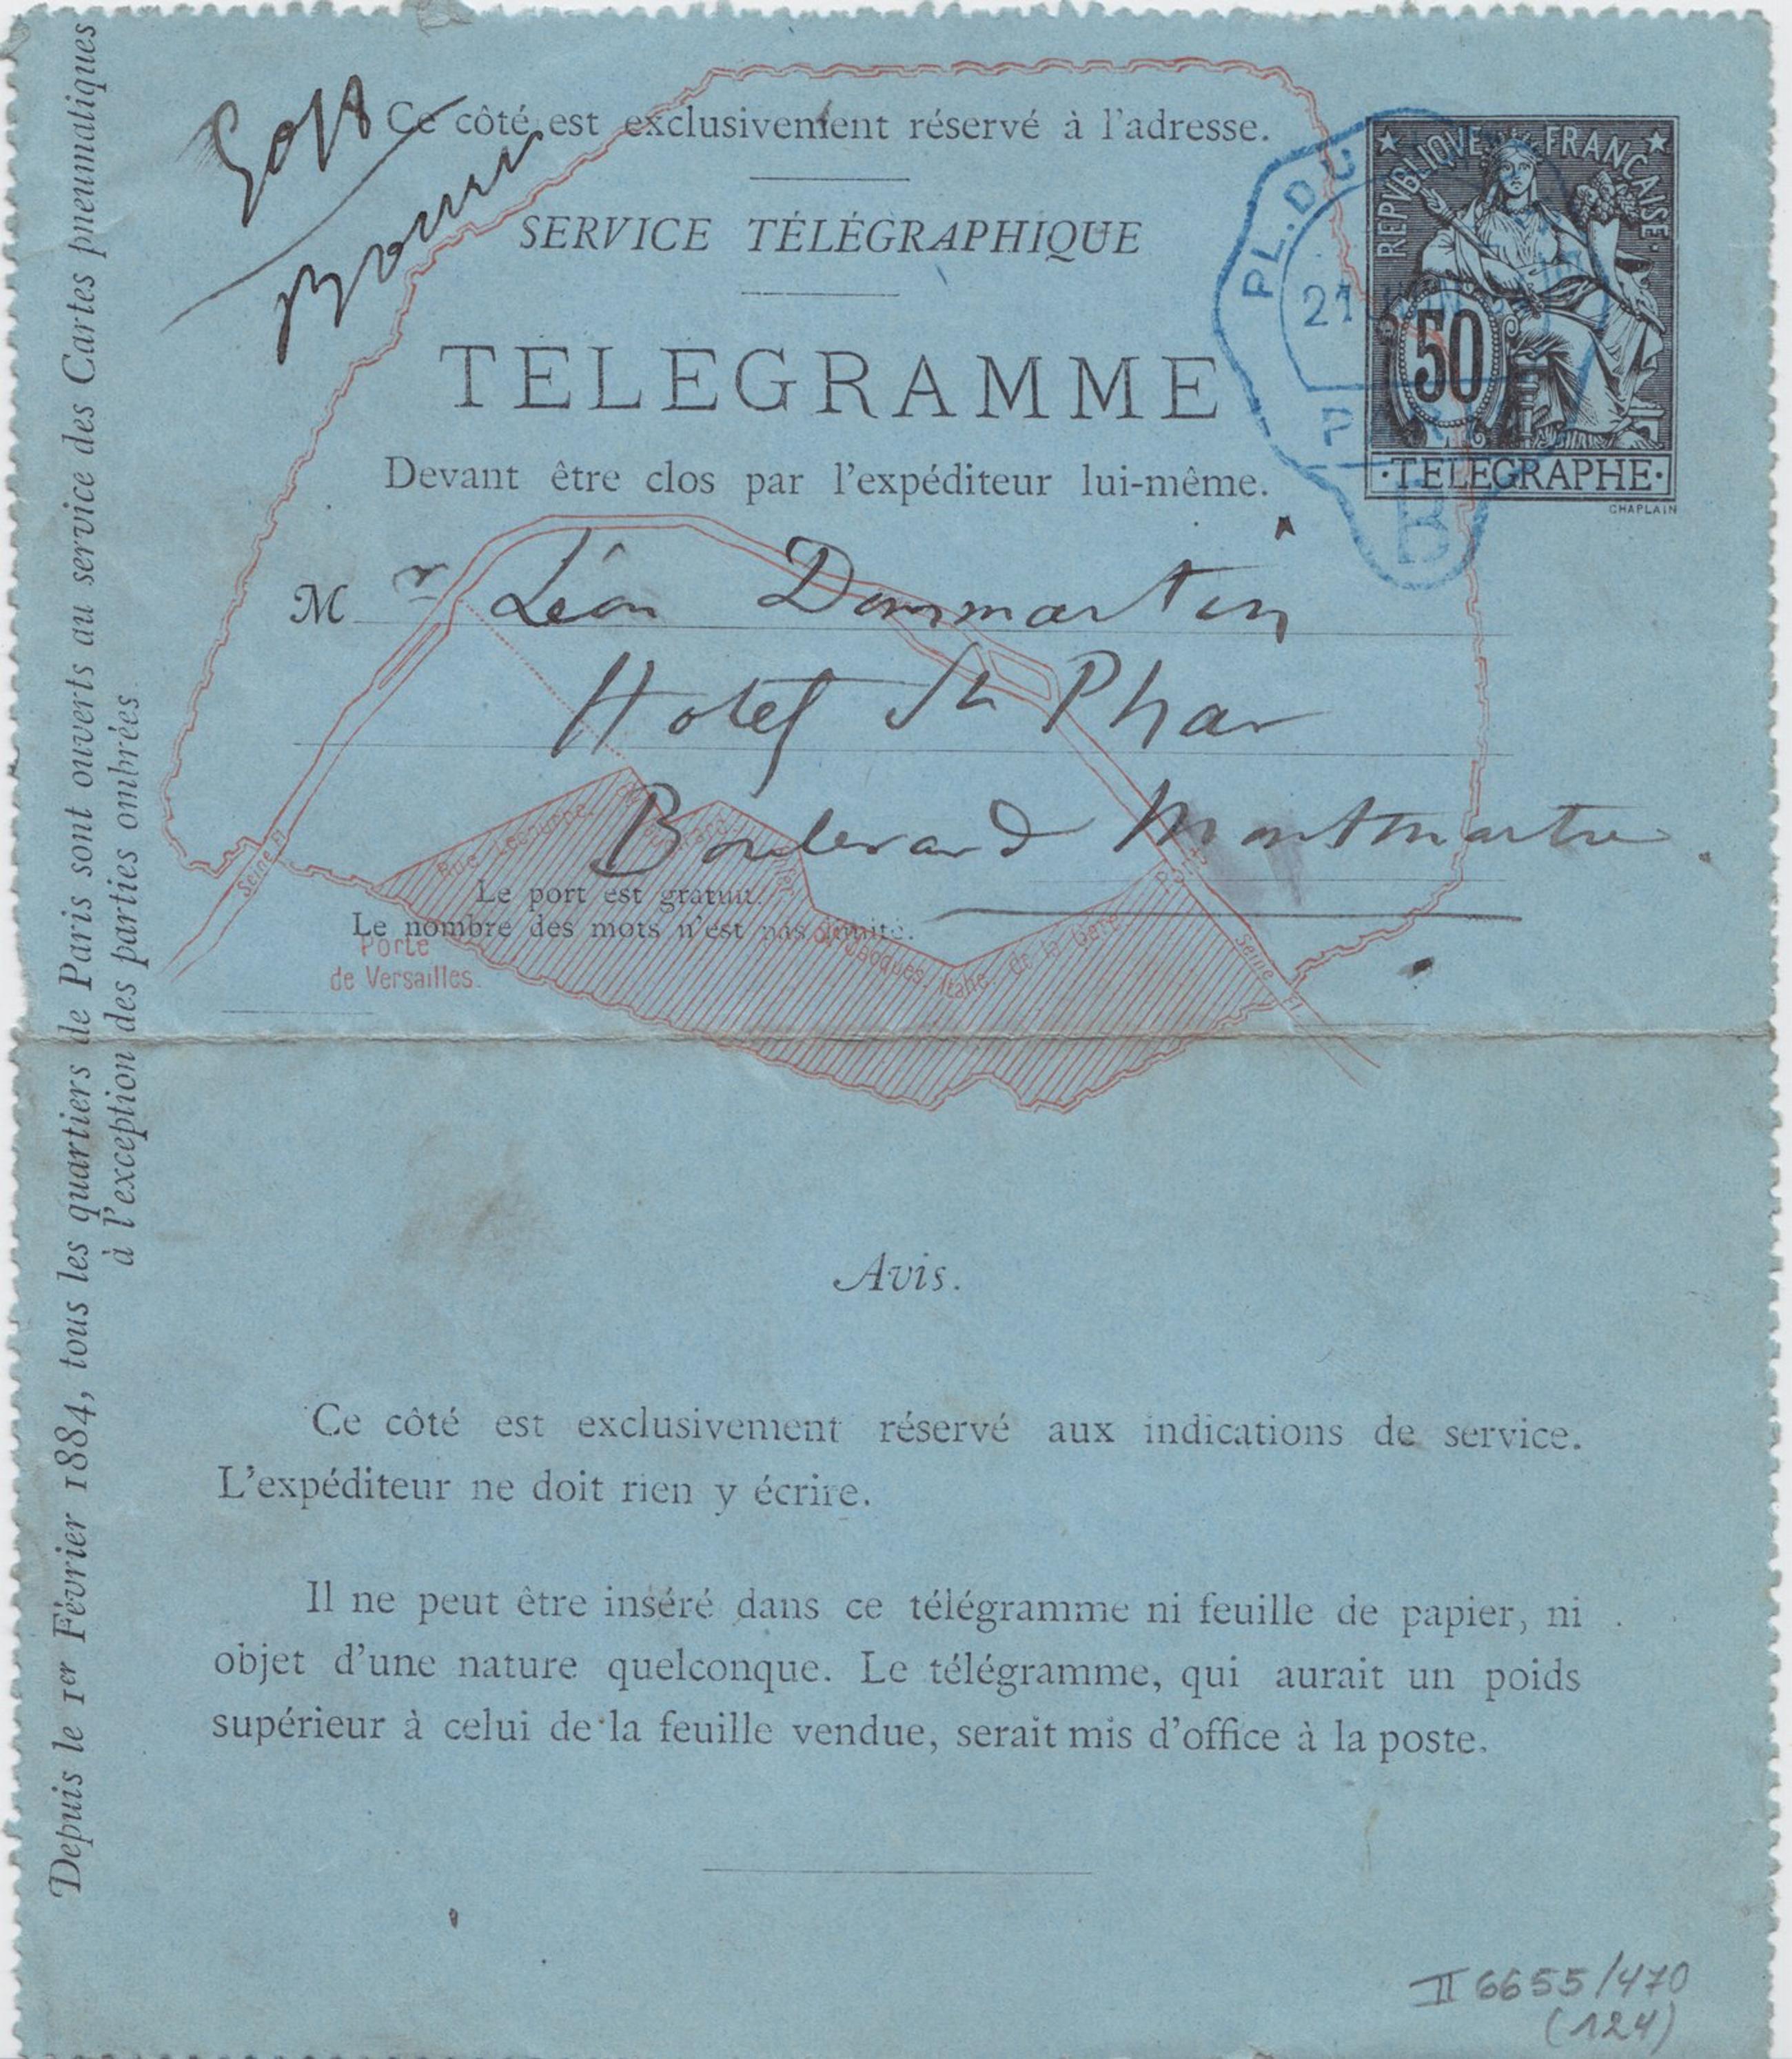 Ce côté est exclusivement réservé à l'adresse.
SERVICE TÉLÉGRAPHIQUE
TÉLÉGRAMME
Devant être clos par l'expéditeur lui-même.
REPVBLIQVE FRANÇAISE
50
TELEGRAPHE
CHAPLAIN
PL. DU
21
B
Mr Léon Dommartin
Hotel St Phar
Boulevard Montmartre.
Le port est gratuit.
Le nombre des mots n'est pas limité.
Rue Lecourbe
Porte
de Versailles.
Seine Fl.
Jacques. Italie. de la Gare.
Seine Fl.
Depuis le 1er Février 1884, tous les quartiers de Paris sont ouverts au service des Cartes pneumatiques
à l'exception des parties ombrées
Avis.
Ce côté est exclusivement réservé aux indications de service.
L'expéditeur ne doit rien y écrire.
Il ne peut être inséré dans ce télégramme ni feuille de papier, ni
objet d'une nature quelconque. Le télégramme, qui aurait un poids
supérieur à celui de la feuille vendue, serait mis d'office à la poste.
II 6655/470
(124)